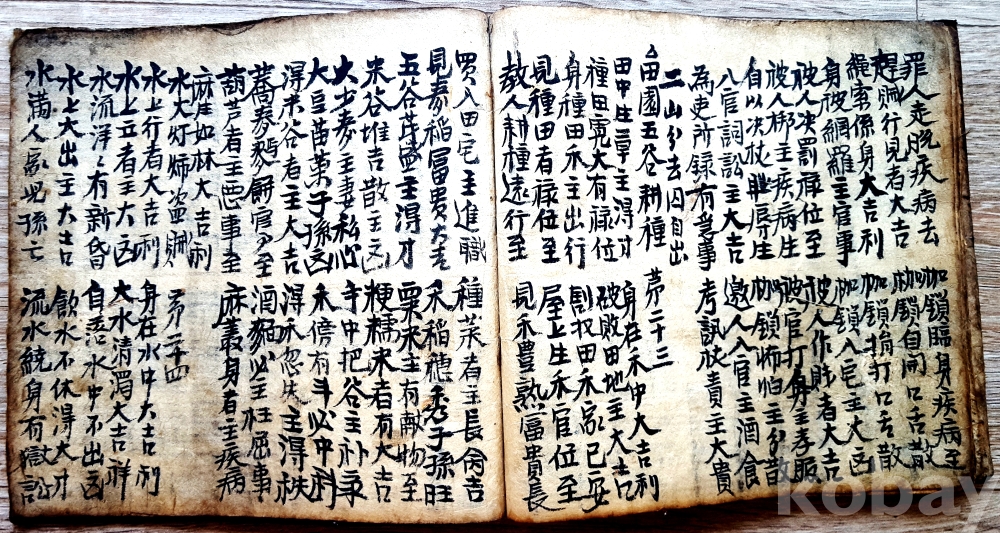 罪人走脫疾病去 枷鎖臨身疾病至
趕賊行見者大吉 枷鎖自開口舌散
繩索係身大吉利 枷鎖損打口舌散
身被網羅主官事 枷鎖入宅主大凶
被人決罰祿位至 被人作賍者大吉
被人梆主疾病生 被官打身主孝服
自以決杖辱生 枷鎖怖怕主分散
入官詞訟主大吉 邀人入官主酒食
為吏所錄有事 考訊責主大貴
二山分去囚自出
田園五谷耕種 苐二十三
田中生草主得才 身在禾中大吉利
種田寬大有祿位 破敗田地主大吉
身種田禾主出行 割找田禾家已安
見種田者祿位至 屋上生禾官位至
教人耕種遠行至 見禾豊熟富貴長
買入田宅主進職 種菜者主長命吉
見泰稻冨貴大吉 禾稻穗秀子孫旺
五谷茂盛主得才 粟米主有献物至
米谷堆吉散主凶 粳糯米者有大吉
大少麦主妻私心 寺中把谷主补
大豆苗葉子孫凶 禾傍有斗必中科
淂米谷者主大吉 淂禾忽失主得秩
蕎麥麺餅官至 酒麹必主枉屈事
葫芦者主惡事至 麻叢身者主疾病
麻庄如林大吉利
水火灯炉盗賊 苐二十四
水上行者大吉利 身在水中大吉利
水上立者主大凶 大水清濁大吉祥
水流洋々有新昏 自落水中不出凶
水上火出主大吉 飲水不休得大才
水滿人家兒孫亡 流水繞身有獄訟
kobay